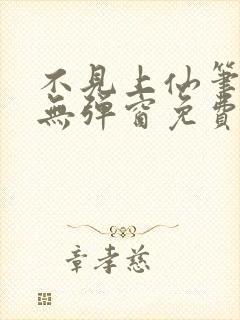 不見上仙筆
無彈窗免費
章孝慈